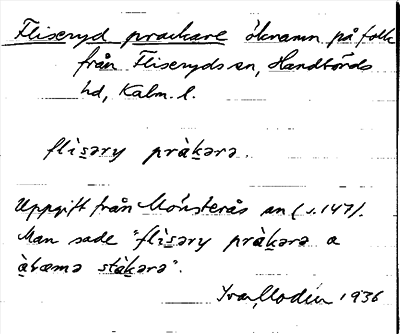 Fliseryd prackare öknamn på folk
från Fliseryds sn, Handbörds
hd, Kalm. l.
flìsəry pràkərə.
Uppgift från Mönsterås sn (s. 147).
Man sade "flìsəry pràkərə a
àbæmə stàkərə".
Ivar Modéer 1936